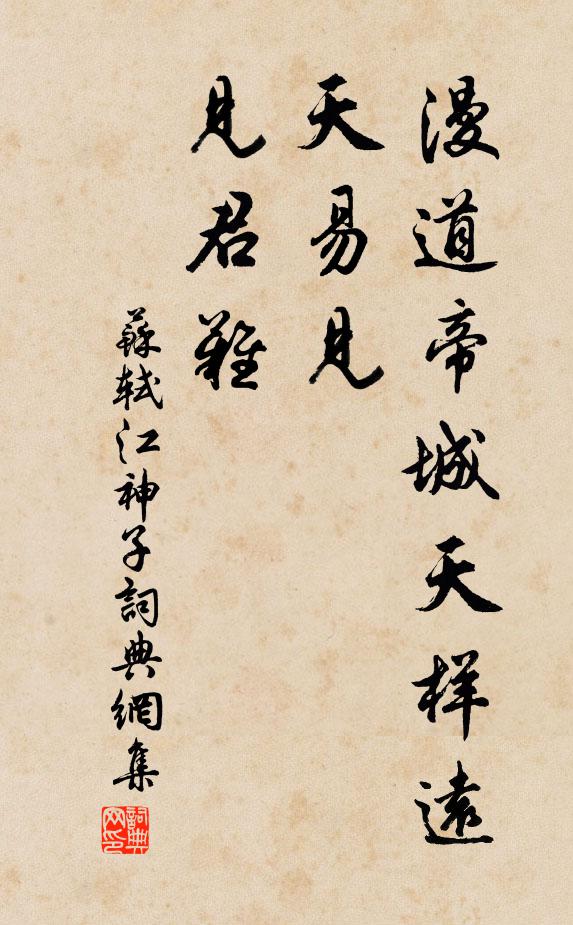 漫道帝城天样遠
天易見
見君難
蘇軾江神子詞典網集
詞典網印